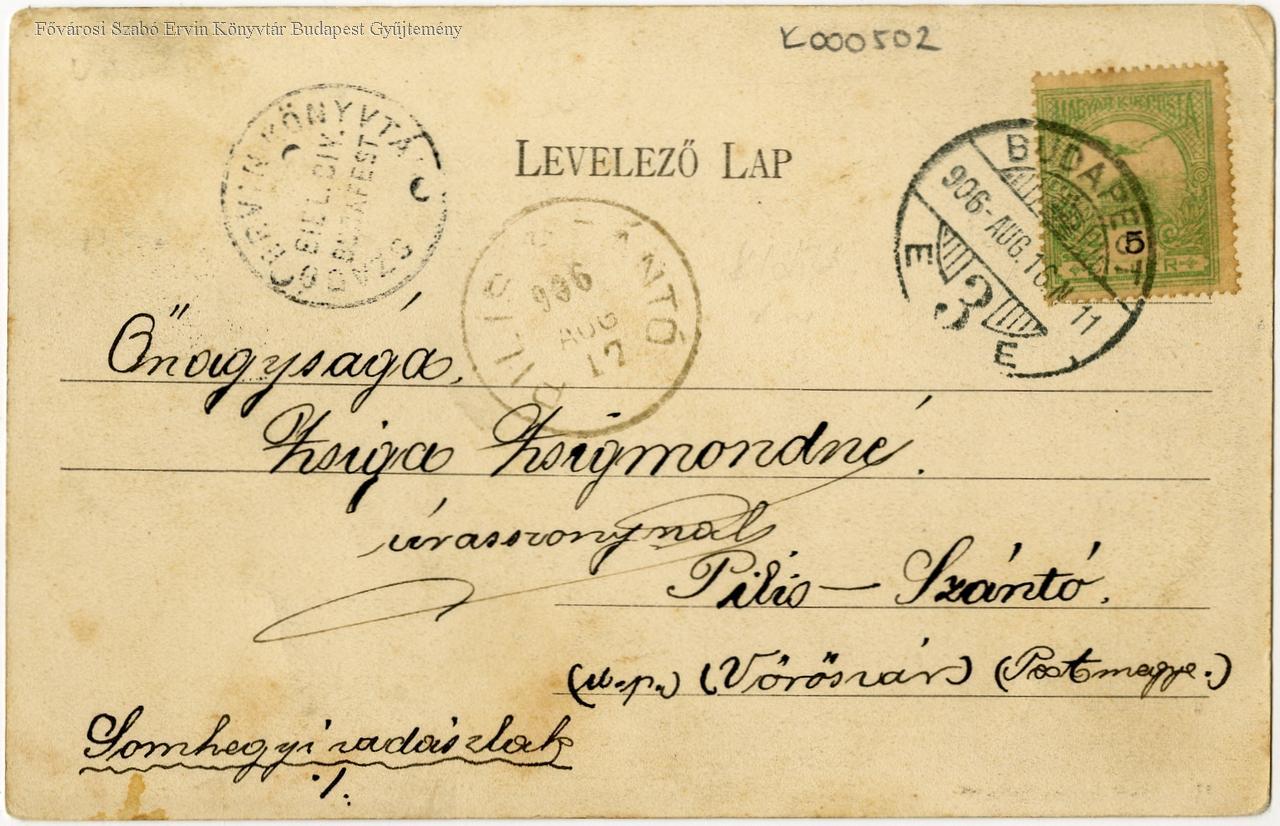 Fővárosi Szabó Ervin Könyvtár Budapest Gyűjtemény
K000502
LEVELEZŐ LAP
MAGYAR KIR. POSTA
5
BUDAPEST
906-AUG.16.N. 11
3
E E
SZABÓ ERVIN KÖNYVTÁR
BUDAPEST
PILIS SZÁNTÓ
906
AUG
17
Őnagysága,
Zsiga Zsigmondné.
úrasszonynál
Pilis - Szántó.
(u.p.) (Vörösvár) (Pestmegye.)
Somhegyi vadászlak
./.